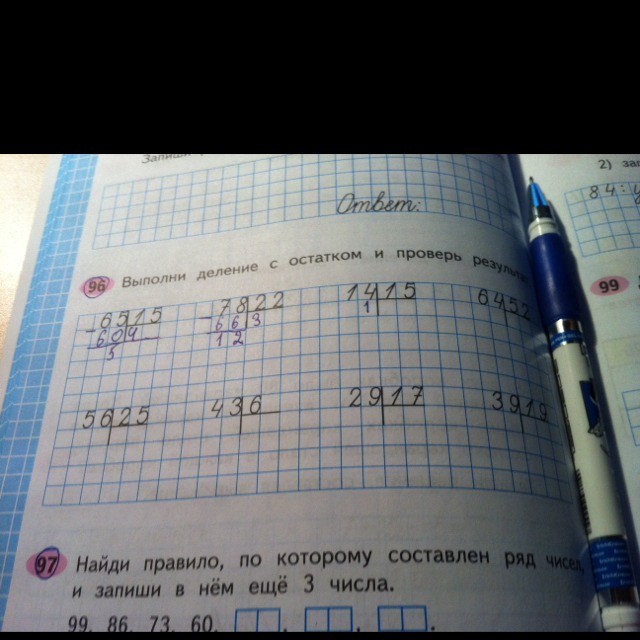 Ответ:
2) за
84:
96 Выполни деление с остатком и проверь результ
99
65 15 78 22 14 15 64 52
60 4 66 3 1
5 12
56 25 43 6 29 17 39 19
97 Найди правило, по которому составлен ряд чисел,
и запиши в нём ещё 3 числа.
99, 86, 73, 60,